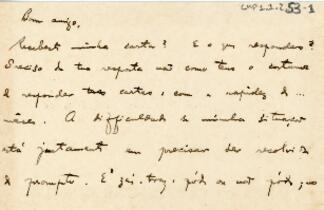 CMP 1.1.2.53-1
Bom amigo,
Recebeste minha carta? E o que respondes?
Preciso de tua resposta não como tens o costume
de responder tuas cartas, com a rapidez de ...
mêses. A difficuldade de minha situação
está justamente em precisar ser resolvida
de prompto. E' zás-traz, póde ou não póde; ou